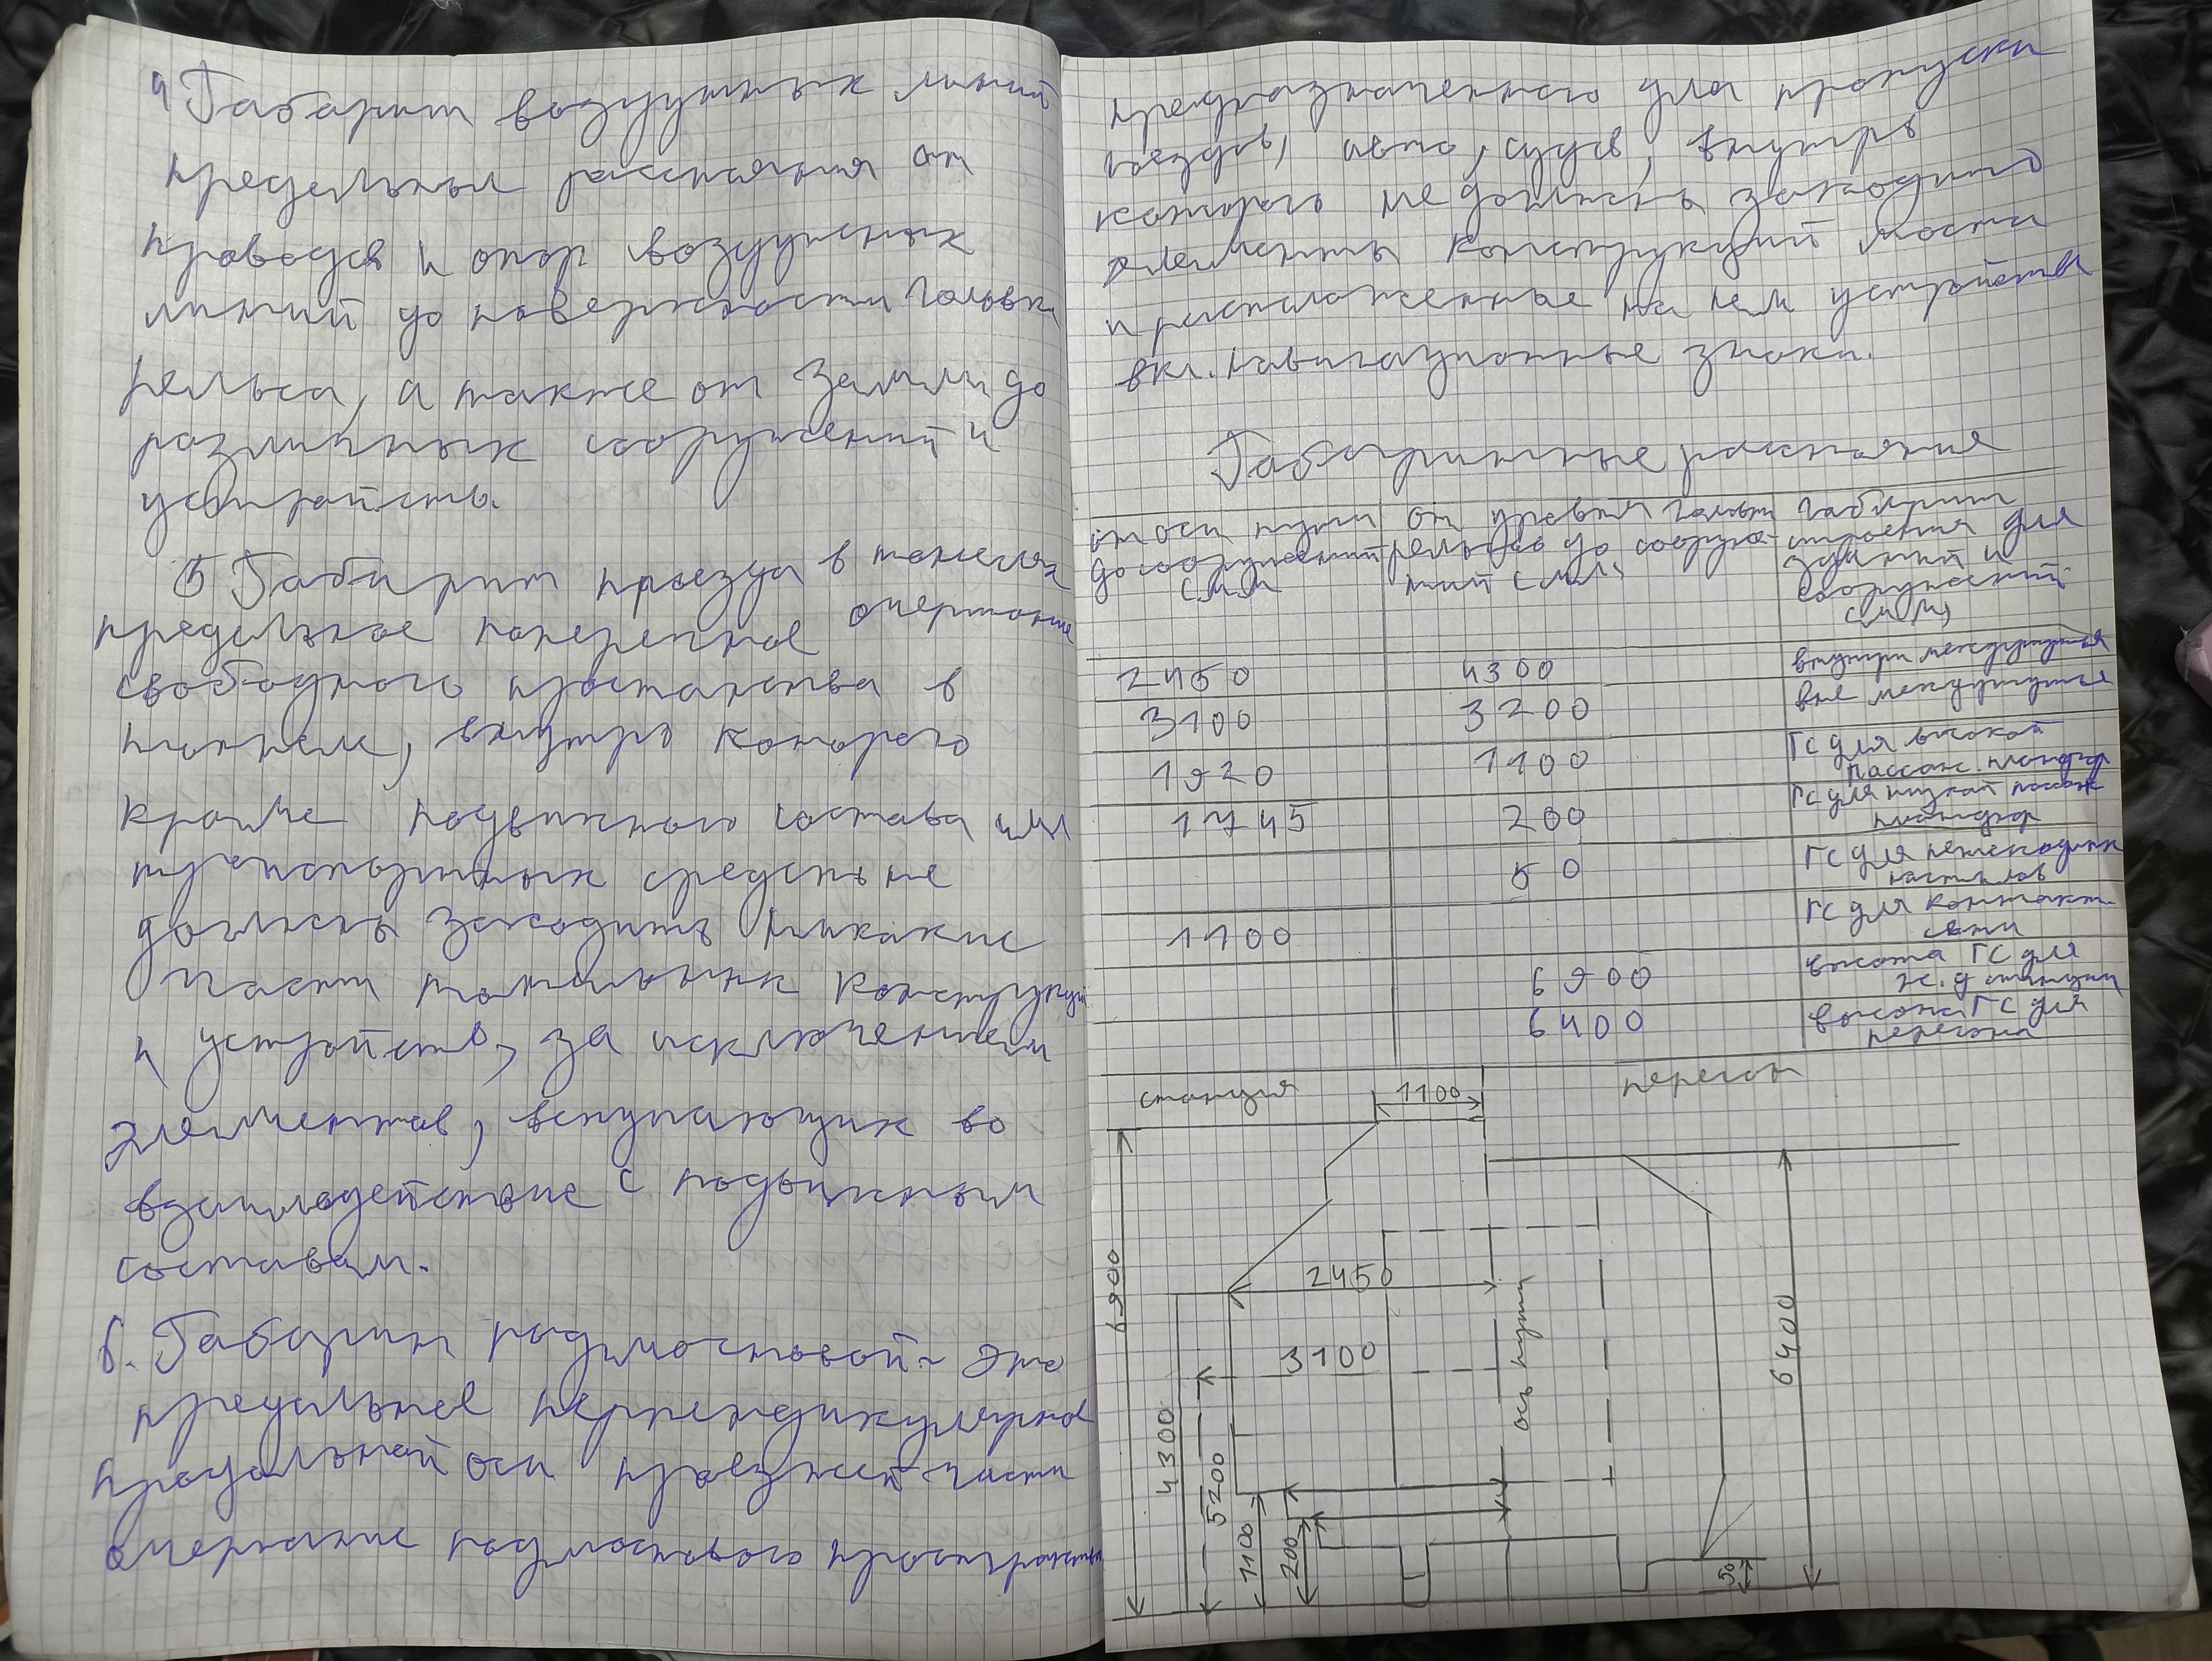 4 Габарит воздушных линий
предельных расстояния от
проводов и опор воздушных
линий до поверхности головки
рельса, а также от земли до
различных сооружений и
устройств.
5 Габарит проезда в тонелях
предельное поперечное очертание
свободного простанства в
тоннеле, внутрь которого
кроме подвижного состава или
транспортных средств не
должны заходить никакие
части тоннельных конструкций
и устройств, за исключением
элементов, вступающих во
взаимодействие с подвижным
составам.
6. Габарит подмостовой - это
предельное перпендикулярное
продольной оси проезжей части
очертание подмостового пространства
предназначенного для пропуска
поездов, авто, судов, внутрь
которого не должны заходить
элементы конструкций моста
и расположенные на нем устройства
вкл. навигационные знаки.
Габаритные расстояние
от оси пути до сооружений с мм
от уровня головки рельсов до сооружений с мм
габарит строения для зданий и сооружений с мм
2450 4300 внутри междупутья
3100 3200 вне междупутья
1920 1100 ГС для высокой пассаж. платфор
1745 200 ГС для низкой пассаж платфор
50 ГС для пешеходных настилов
1100 ГС для контакт. сети
6900 высота ГС для ж.д станции
6400 высота ГС для перегона
станция 1100 перегон
6900
2450
3100
ось пути
6400
4300
5200
1100
200
50